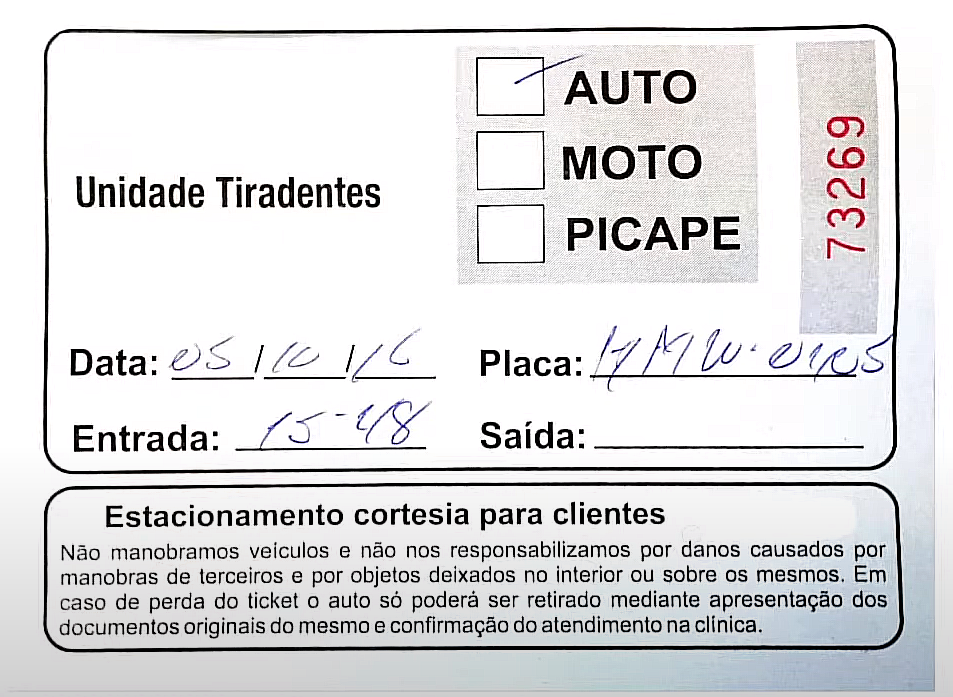 AUTO
MOTO
PICAPE
73269
Unidade Tiradentes
Data: 05/10/16
Placa:
Entrada: 15-48
Saída:
Estacionamento cortesia para clientes
Não manobramos veículos e não nos responsabilizamos por danos causados por
manobras de terceiros e por objetos deixados no interior ou sobre os mesmos. Em
caso de perda do ticket o auto só poderá ser retirado mediante apresentação dos
documentos originais do mesmo e confirmação do atendimento na clínica.